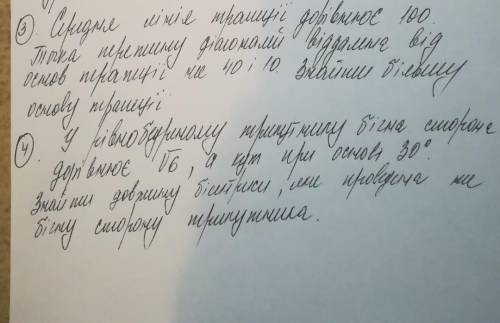 ③. Середня лінія трапеції дорівнює 100.
Точка перетину діагоналей віддалена від
основ трапеції на 40 і 10. Знайти більшу
основу трапеції
④. У рівнобедреному трикутнику бічна сторона
дорівнює √6, а кут при основі 30°.
Знайти довжину бісектриси, яка проведена на
бічну сторону трикутника.